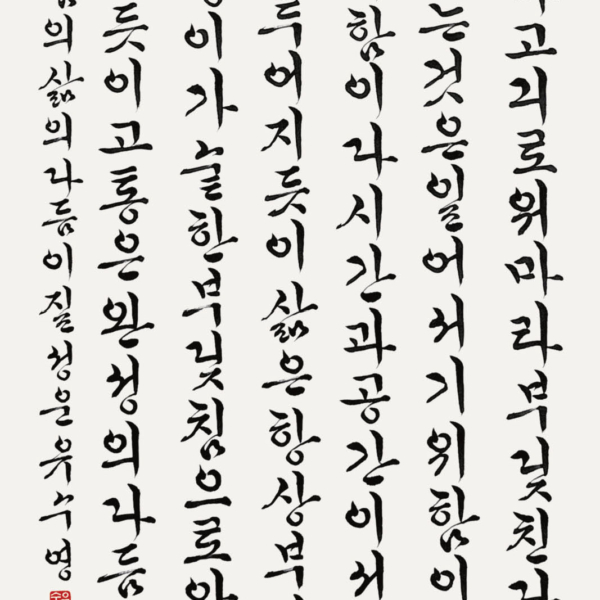 고괴로워마라부딪친다
는것은일어서기위함이
함이라시간과공간이서
두어지듯이삶은항상부
이가숱한부딪침으로아
듯이고통은완성의다듬
의삶의다듬이질성운유수영